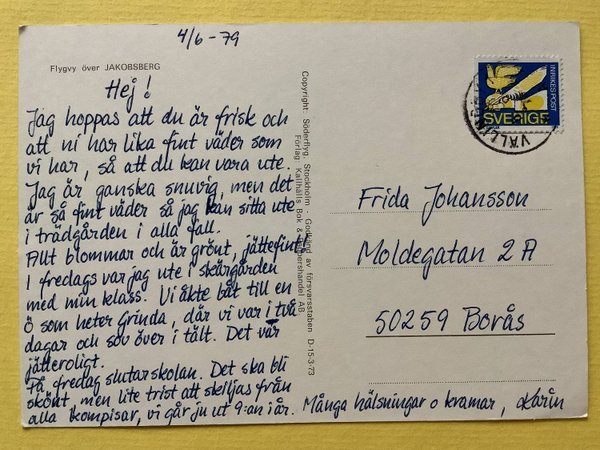 4/6-79
Flygvy över JAKOBSBERG
Hej!
Jag hoppas att du är frisk och
att ni har lika fint väder som
vi har, så att du kan vara ute.
Jag är ganska snuvig, men det
är så fint väder så jag kan sitta ute
i trädgården i alla fall.
Allt blommar och är grönt, jättefint!
I fredags var jag ute i skärgården
med min klass. Vi åkte båt till en
ö som heter Grinda, där vi var i två
dagar och sov över i tält. Det var
jätteroligt.
På fredag slutar skolan. Det ska bli
skönt, men lite trist att skiljas från
alla kompisar, vi går ju ut 9:an i år. Många hälsningar o kramar, Karin
Copyright: Söderflyg, Stockholm - Godkänd av försvarsstaben D-15-3-73
Förlag: Kallhälls Bok & Pappershandel AB
INRIKES POST
SVERIGE
Frida Johansson
Moldegatan 2A
50259 Borås